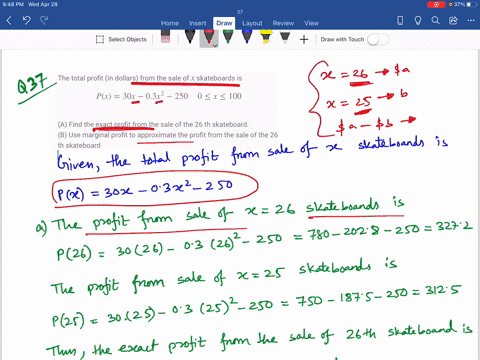 9:48 PM Wed Apr 28
37
37%
Home Insert Draw Layout Review View
Select Objects
Draw with Touch
Q37
The total profit (in dollars) from the sale of x skateboards is
P(x) = 30x − 0.3x² − 250 0 ≤ x ≤ 100
(A) Find the exact profit from the sale of the 26 th skateboard.
(B) Use marginal profit to approximate the profit from the sale of the 26
th skateboard
x = 26 → $a
x = 25 → b
$a − $b →
Given, the total profit from sale of x skateboards is
P(x) = 30x − 0.3x² − 250
a) The profit from sale of x = 26 skateboards is
P(26) = 30(26) − 0.3 (26)² − 250 = 780 − 202.8 − 250 = 327.2
The profit from sale of x = 25 skateboards is
P(25) = 30(25) − 0.3 (25)² − 250 = 750 − 187.5 − 250 = 312.5
Thus, the exact profit from the sale of 26th skateboard is